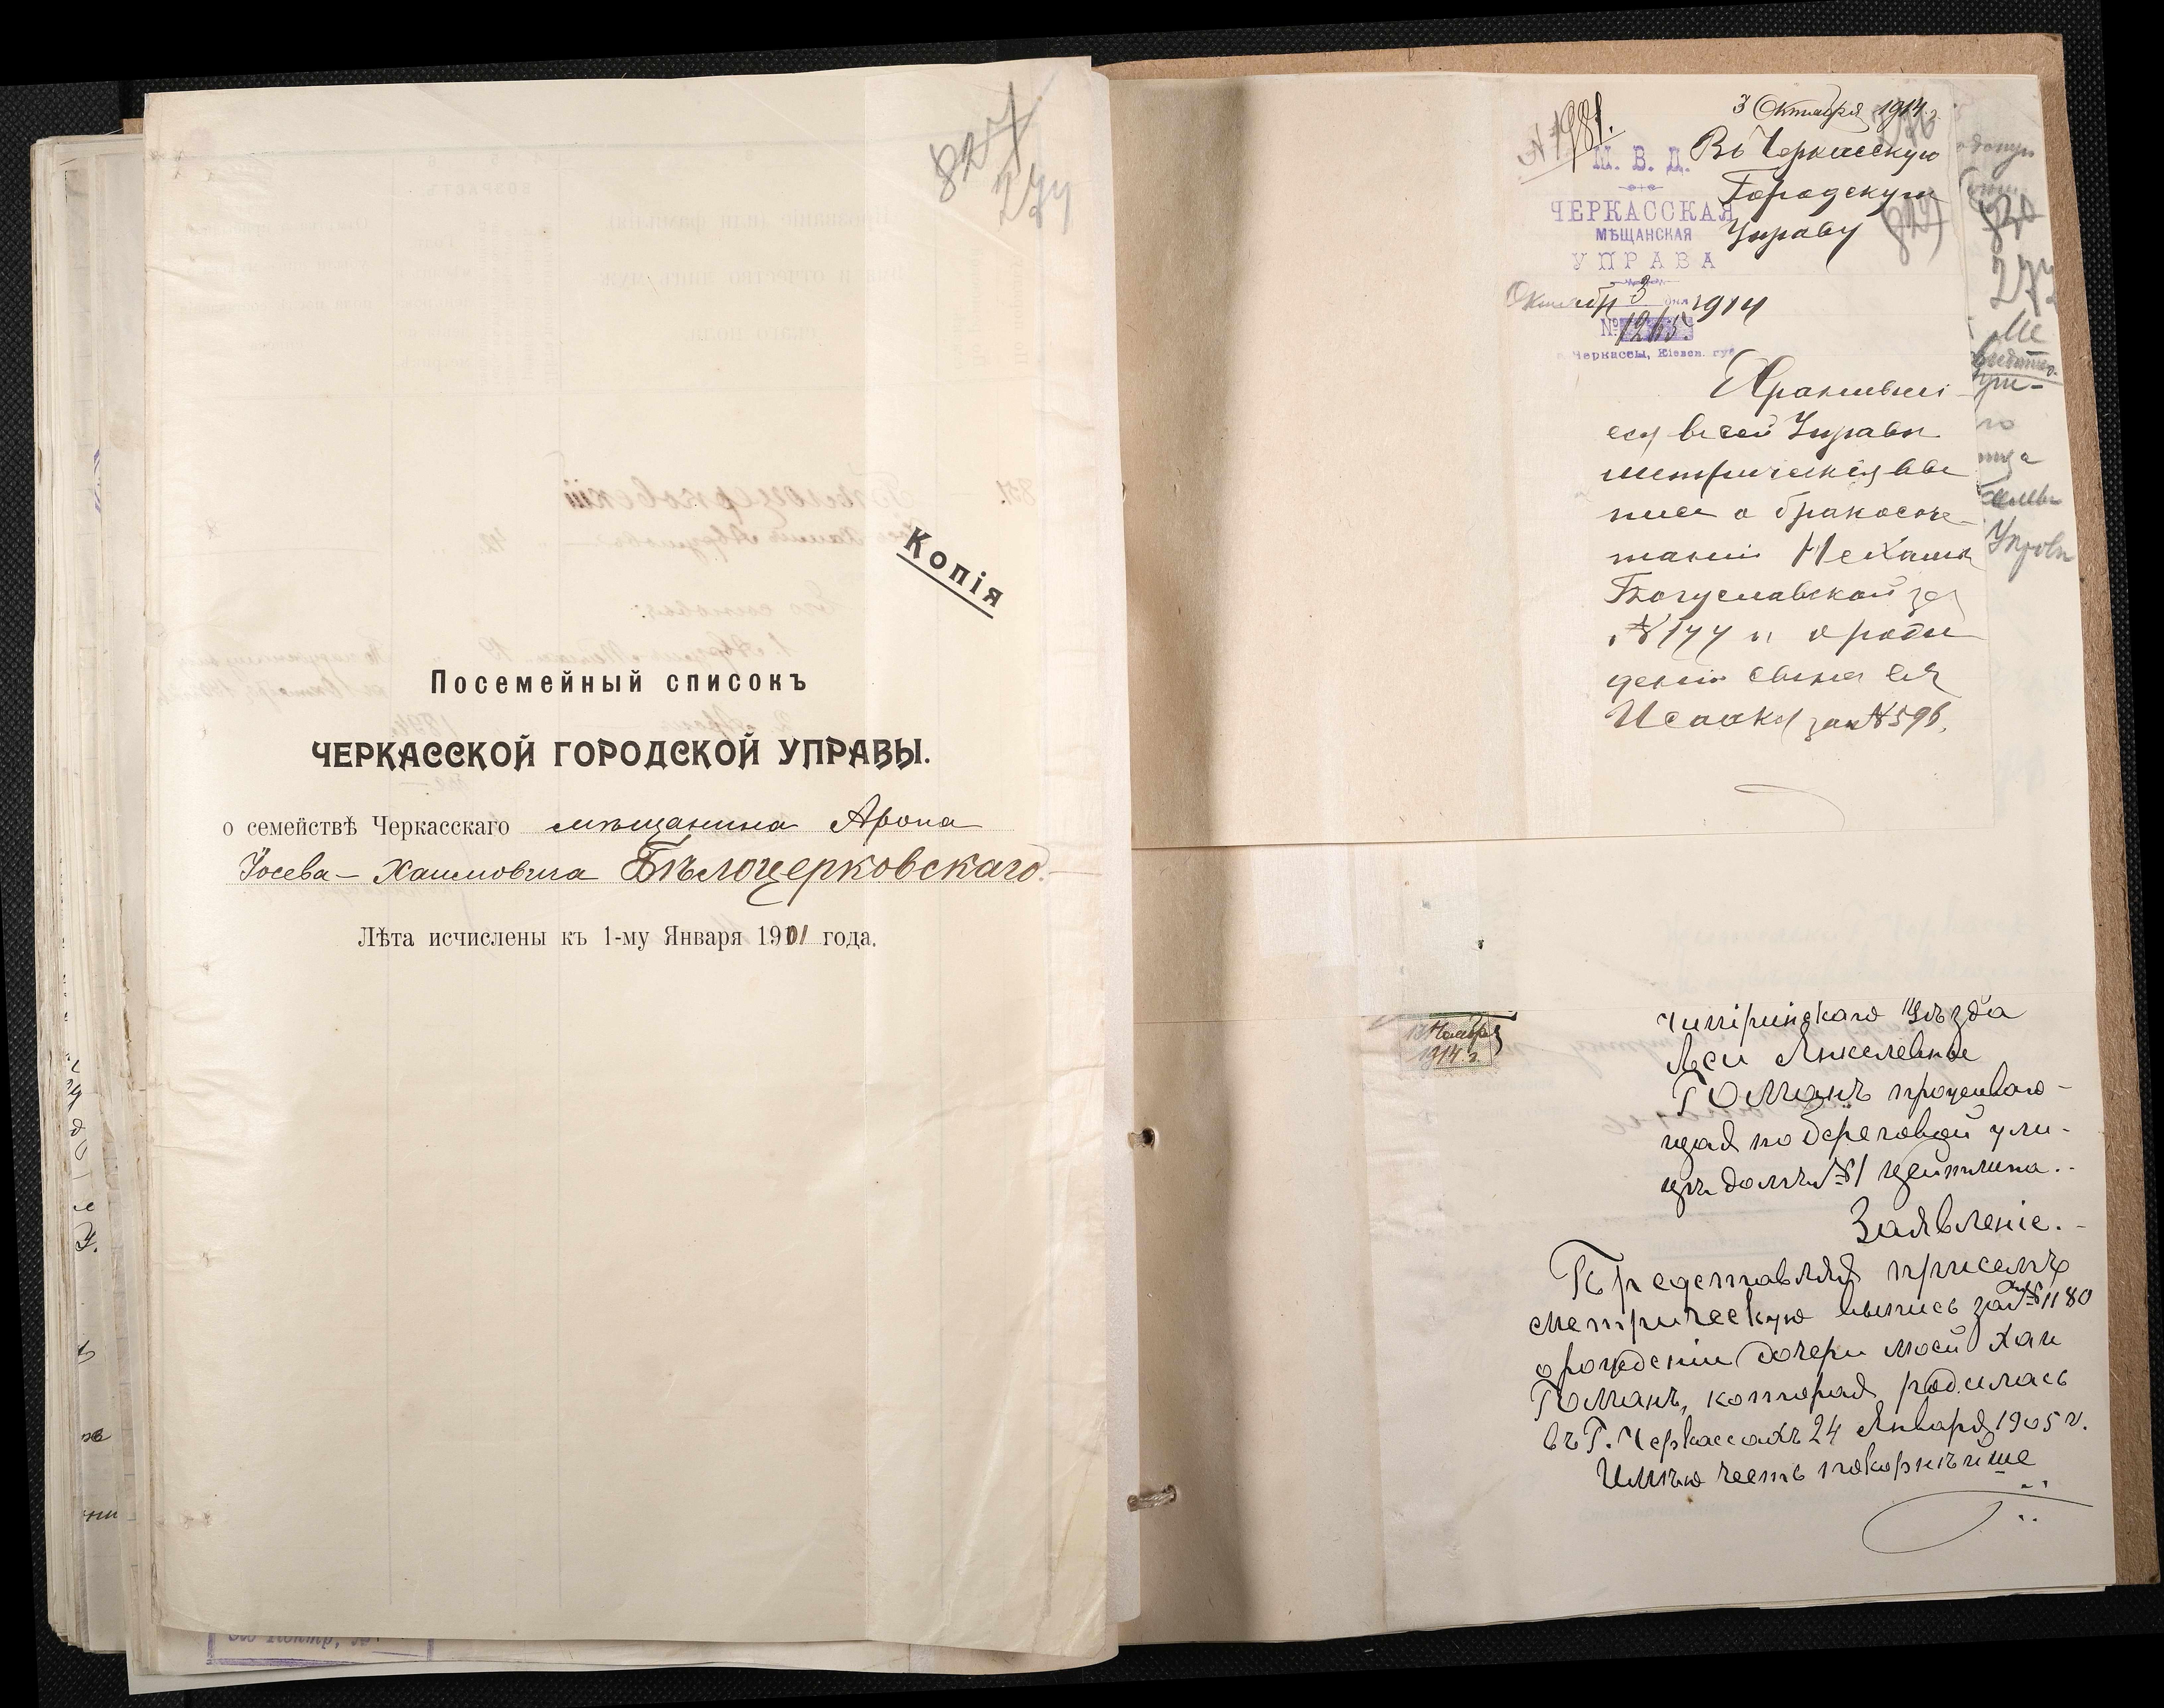 827
274
Копія
Посемейный списокъ
ЧЕРКАССКОЙ ГОРОДСКОЙ УПРАВЫ.
о семействѣ Черкасскаго мѣщанина Арона
Іосева-Хаимовича Бѣлоцерковскаго.
Лѣта исчислены къ 1-му Января 1901 года.
3 Октября 1914 г.
№ 1981.
Въ Черкасскую
Городскую
Управу
М. В. Д.
ЧЕРКАССКАЯ
МѢЩАНСКАЯ
УПРАВА
Октября 3 дня 1914
№
г. Черкассы, Кіевск. губ.
Хранивші
еся въ сей Управѣ
метрическія вы
писи о бракосоче-
таніи Нехамы
Богуславской за
№ 177 и о рож
деніи сына ея
Исаака за № 596.
13 Ноября
1914 г.
Чигиринскаго Уѣзда
Леи Янкелевны
Гоманъ проживаю-
щая по Береговой ули-
цѣ домъ №1 Цейтлина.-
Заявленіе.-
Представляя присемъ
метрическую выпись за № 1180
о рожденіи дочери моей Хаи
Гоманъ, которая родилась
въ Г. Черкассахъ 24 Января 1905 г.
Имѣю честь покорнѣйше